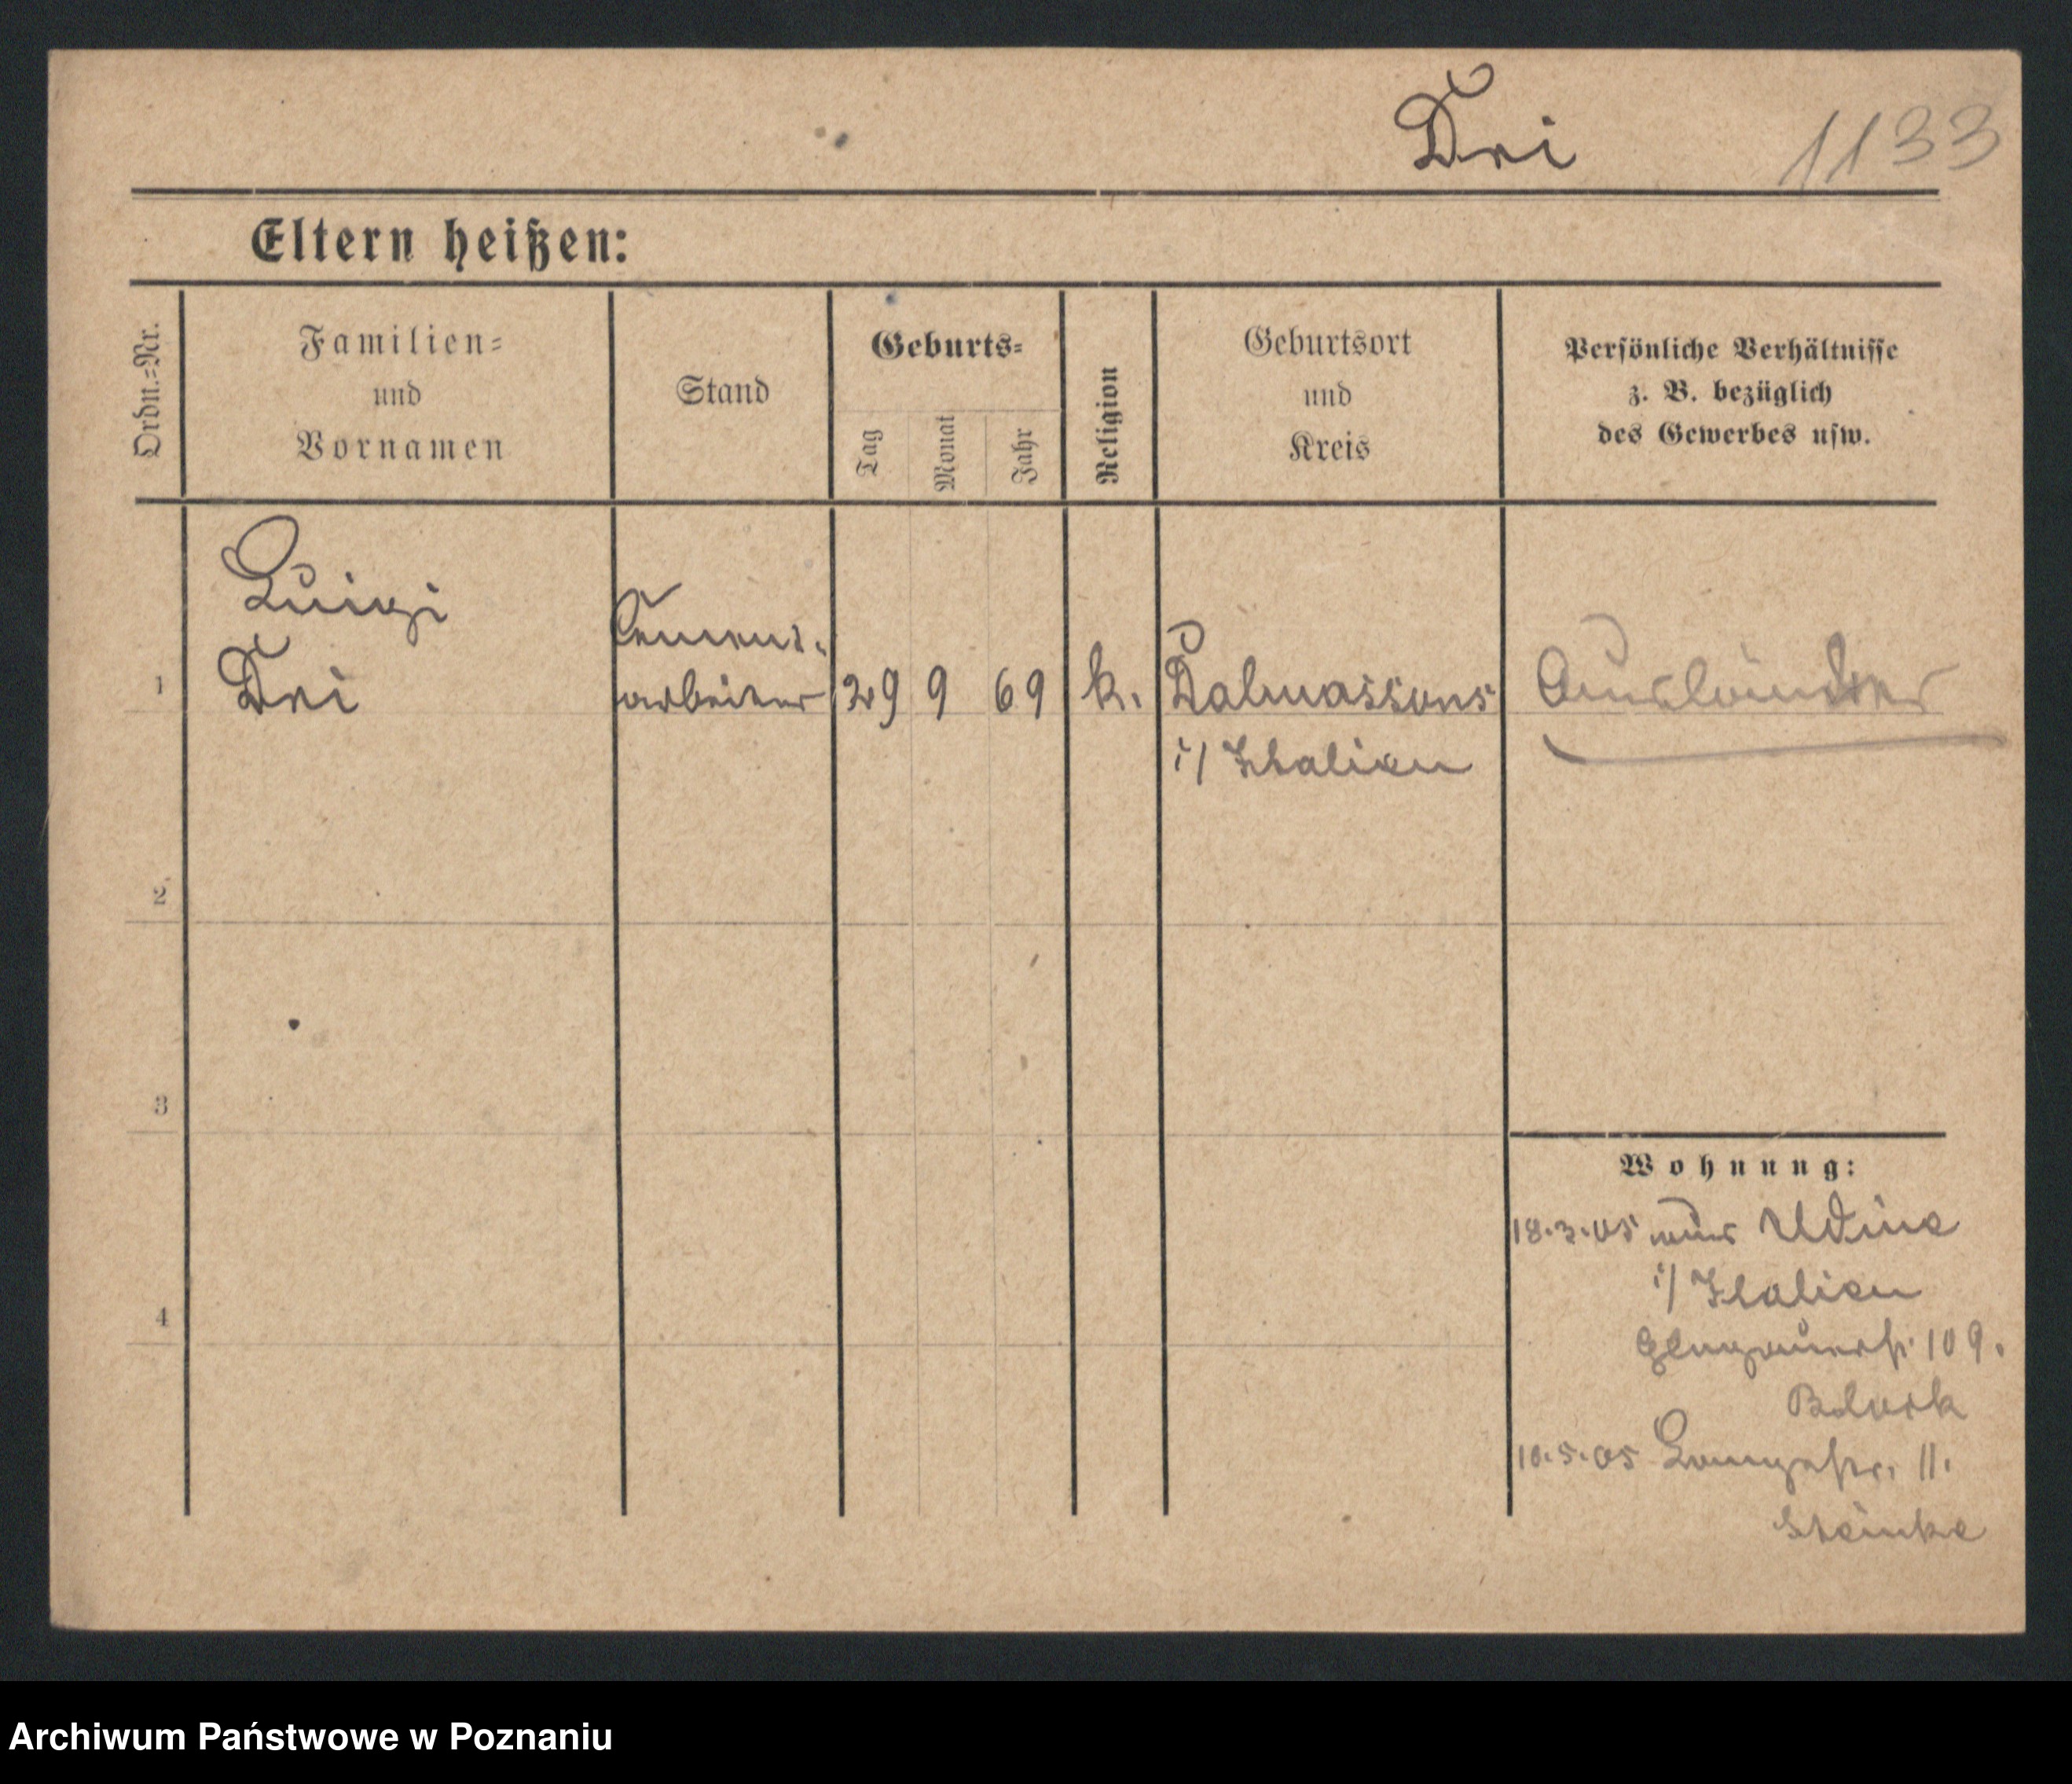 Dri 1133
Eltern heißen:
Ordn.=Nr.
Familien=
und
Vornamen
Stand
Geburts=
Tag
Monat
Jahr
Religion
Geburtsort
und
Kreis
Persönliche Verhältnisse
z. B. bezüglich
des Gewerbes usw.
Luigi
Cement-
1 Dri arbeiter 29 9 69 k. Talmassons Ausländer
i/ Italien
2
3
Wohnung:
18.3.05 aus Udine
i/ Italien
4
Glogauerstr. 109.
10.5.05 Langestr. 11.
Steinke
Archiwum Państwowe w Poznaniu